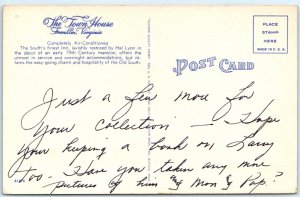 The Town House
Franklin, Virginia
Completely Air-Conditioned
The South's finest inn, lavishly restored by Hal Lyon in
the decor of an early 19th Century mansion, offers the
utmost in service and overnight accommodations, but re-
tains the easy-going charm and hospitality of the Old South.
POST CARD
PLACE
STAMP
HERE
MADE IN U.S.A.
Just a few more for
Your Collection – Hope
Your keeping a book on Larry
too. Have you taken any more
pictures of him and Mom & Pop?